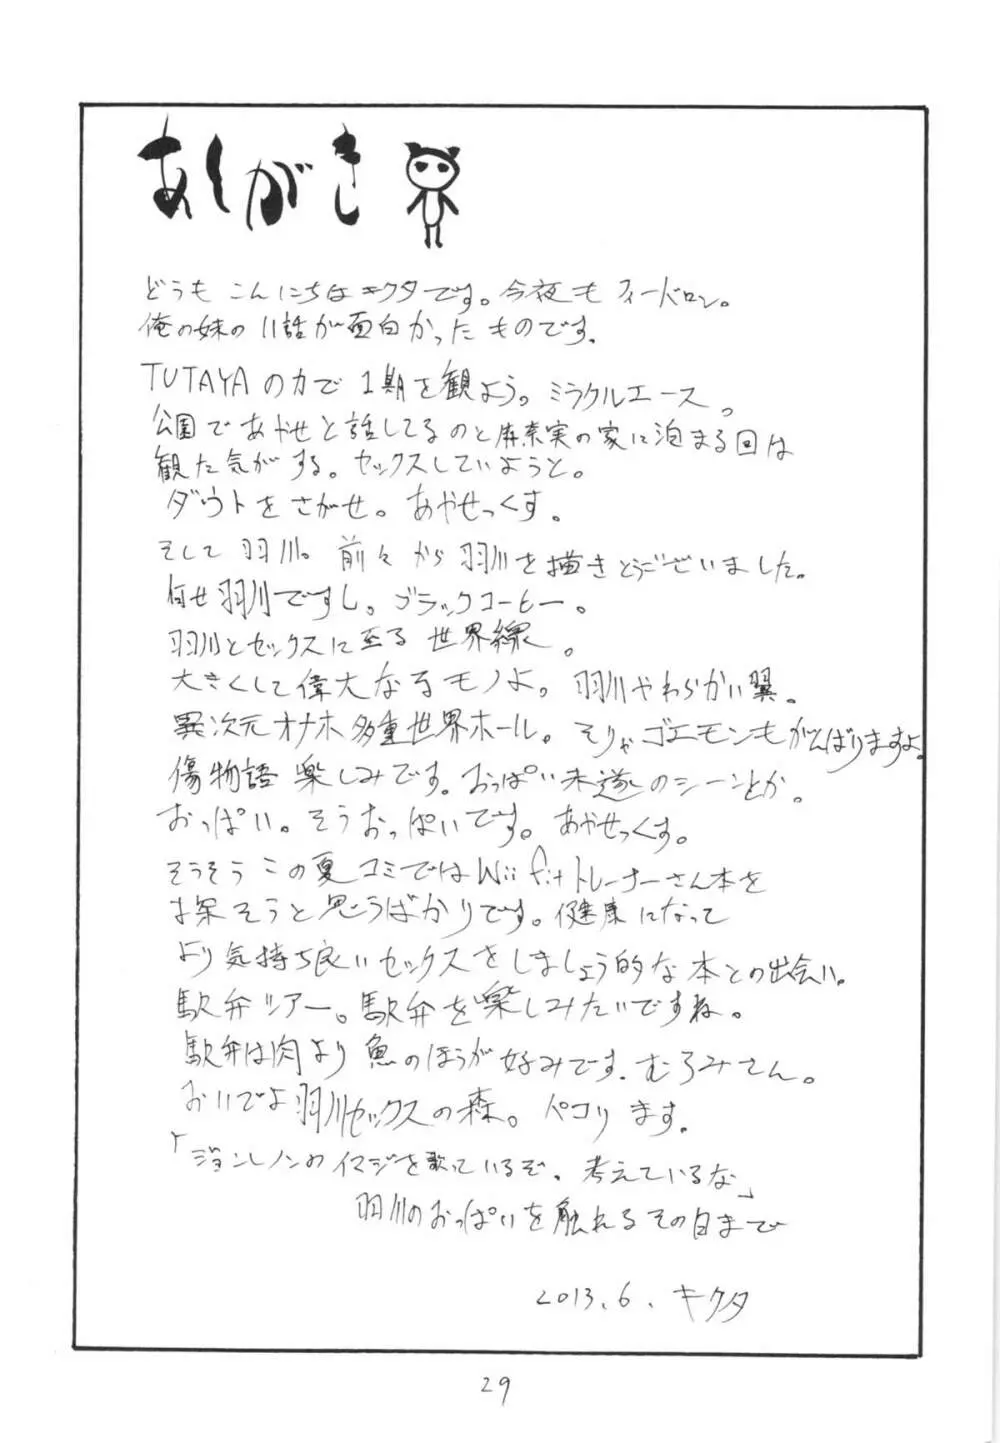 あしがき
どうもこんにちはキクタです。今夜もフィードロン。
俺の妹の11話が面白かったものです。
TUTAYAの力で1期を観よう。ミラクルエース。
公園であやせと話してるのと麻奈実の家に泊まる回は
観た気がする。セックスしていようと。
ダウトをさがせ。あやせっくす。
そして羽川。前々から羽川を描きとうございました。
何せ羽川ですし。ブラックコーヒー。
羽川とセックスに至る世界線。
大きくして偉大なるモノよ。羽川やわらかい翼。
異次元オナホ多重世界ホール。そりゃゴエモンもがんばりますよ。
傷物語楽しみです。おっぱい未遂のシーンとか。
おっぱい。そうおっぱいです。あやせっくす。
そうそうこの夏コミではWii fitトレーナーさん本を
探そうと思うばかりです。健康になって
より気持ち良いセックスをしましょう的な本との出会い。
駅弁ツアー。駅弁を楽しみたいですね。
駅弁は肉より魚のほうが好みです。むろみさん。
おいでよ羽川セックスの森。ペコリます。
「ジョンレノンのイマジを歌っているぞ。考えているな」
羽川のおっぱいを触れるその日まで
2013.6. キクタ
29